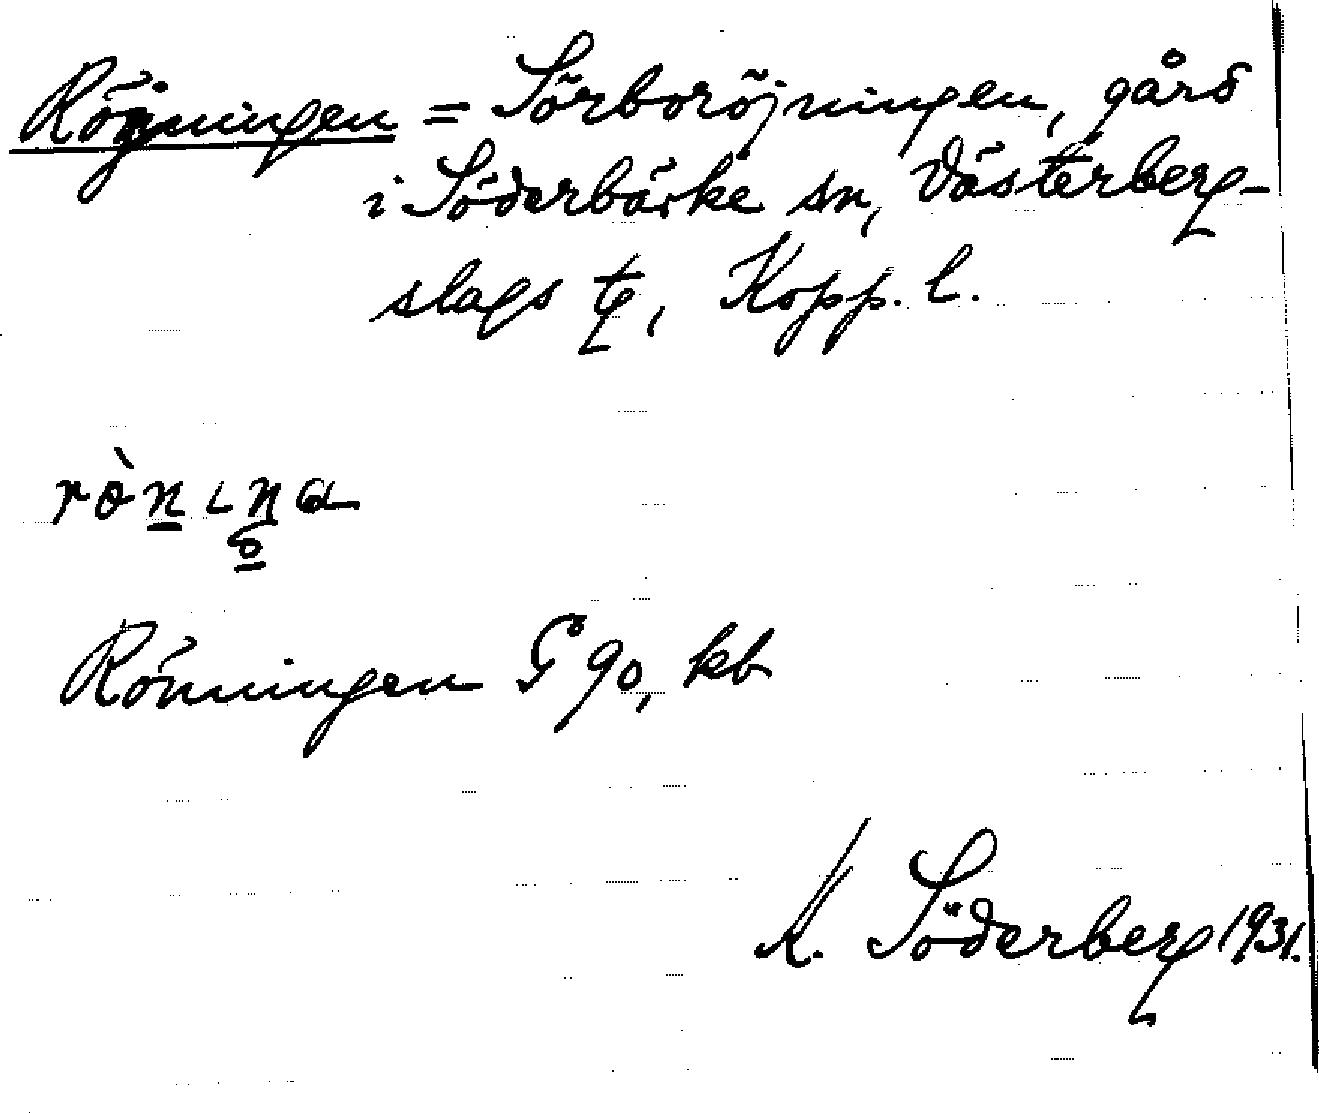 Röjningen = Sörboröjningen, gård
i Söderbärke sn, Västerberg-
slags tg, Kopp. l.
Rönningen G 90, kb
K. Söderberg 1931.